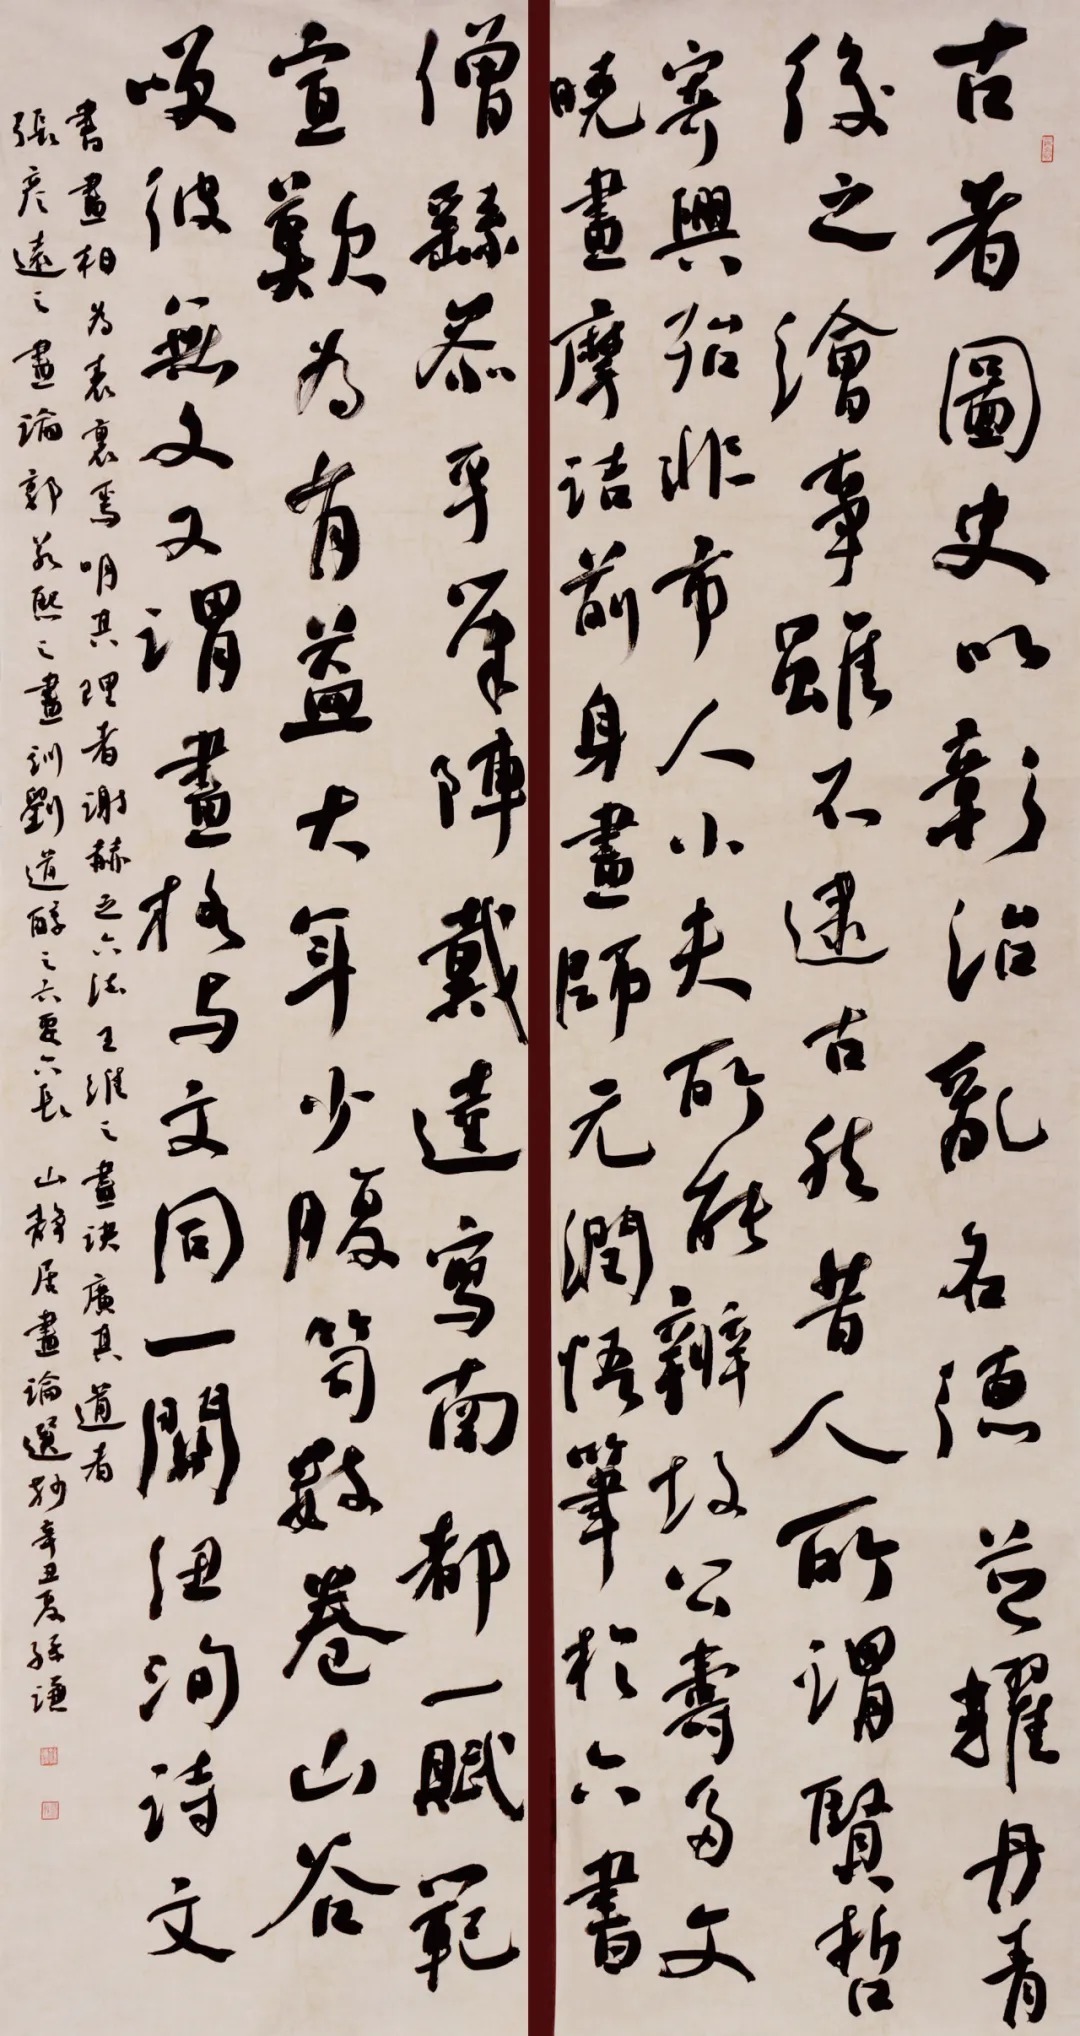 古者圖史以彰治亂名德益耀丹青
後之繪事雖不逮古然昔人所謂賢哲
寄興殆非市人小夫所能辦故公壽多文
曉畫摩詰前身畫師元潤悟筆於六書
僧繇參乎筆陣戴逵寫南都一賦範
宣歎為有益大年少腹笥數卷山谷
嘆彼無文又謂畫格与文同一關紐洵詩文
書畫相為表裏焉明其理者謝赫之六法王維之畫訣廣其道者
張彥遠之畫論郭若熙之畫訓劉道醇之六要六長 山靜居畫論選抄辛丑夏孫謙